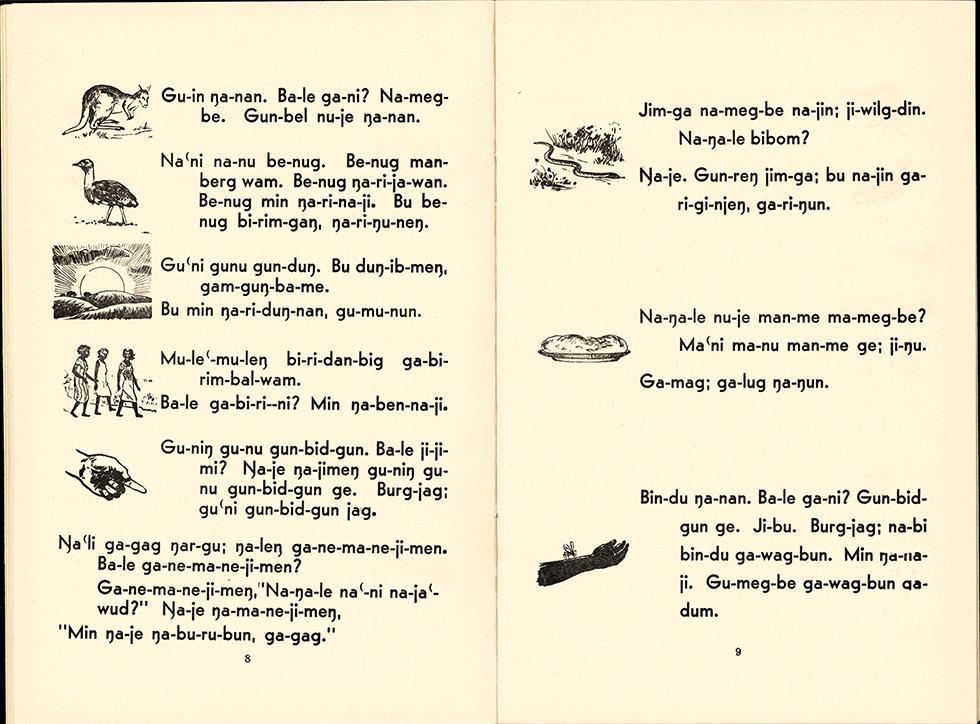 Gu-in ŋa-nan. Ba-le ga-ni? Na-meg-
be. Gun-bel nu-je ŋa-nan.
Naʻni na-nu be-nug. Be-nug man-
berg wam. Be-nug ŋa-ri-ja-wan.
Be-nug min ŋa-ri-na-ji. Bu be-
nug bi-rim-gaŋ, ŋa-ri-ŋu-neŋ.
Guʻni gunu gun-duŋ. Bu duŋ-ib-meŋ,
gam-guŋ-ba-me.
Bu min ŋa-ri-duŋ-nan, gu-mu-nun.
Mu-leʻ-mu-leŋ bi-ri-dan-big ga-bi-
rim-bal-wam.
Ba-le ga-bi-ri--ni? Min ŋa-ben-na-ji.
Gu-niŋ gu-nu gun-bid-gun. Ba-le ji-ji-
mi? Ŋa-je ŋa-jimeŋ gu-niŋ gu-
nu gun-bid-gun ge. Burg-jag;
guʻni gun-bid-gun jag.
Ŋaʻli ga-gag ŋar-gu; ŋa-leŋ ga-ne-ma-ne-ji-men.
Ba-le ga-ne-ma-ne-ji-men?
Ga-ne-ma-ne-ji-meŋ,"Na-ŋa-le naʻ-ni na-jaʻ-
wud?" Ŋa-je ŋa-ma-ne-ji-meŋ,
"Min ŋa-je ŋa-bu-ru-bun, ga-gag."
8
Jim-ga na-meg-be na-jin; ji-wilg-din.
Na-ŋa-le bibom?
Ŋa-je. Gun-reŋ jim-ga; bu na-jin ga-
ri-gi-njeŋ, ga-ri-ŋun.
Na-ŋa-le nu-je man-me ma-meg-be?
Maʻni ma-nu man-me ge; ji-ŋu.
Ga-mag; ga-lug ŋa-ŋun.
Bin-du ŋa-nan. Ba-le ga-ni? Gun-bid-
gun ge. Ji-bu. Burg-jag; na-bi
bin-du ga-wag-bun. Min ŋa-na-
ji. Gu-meg-be ga-wag-bun ga-
dum.
9